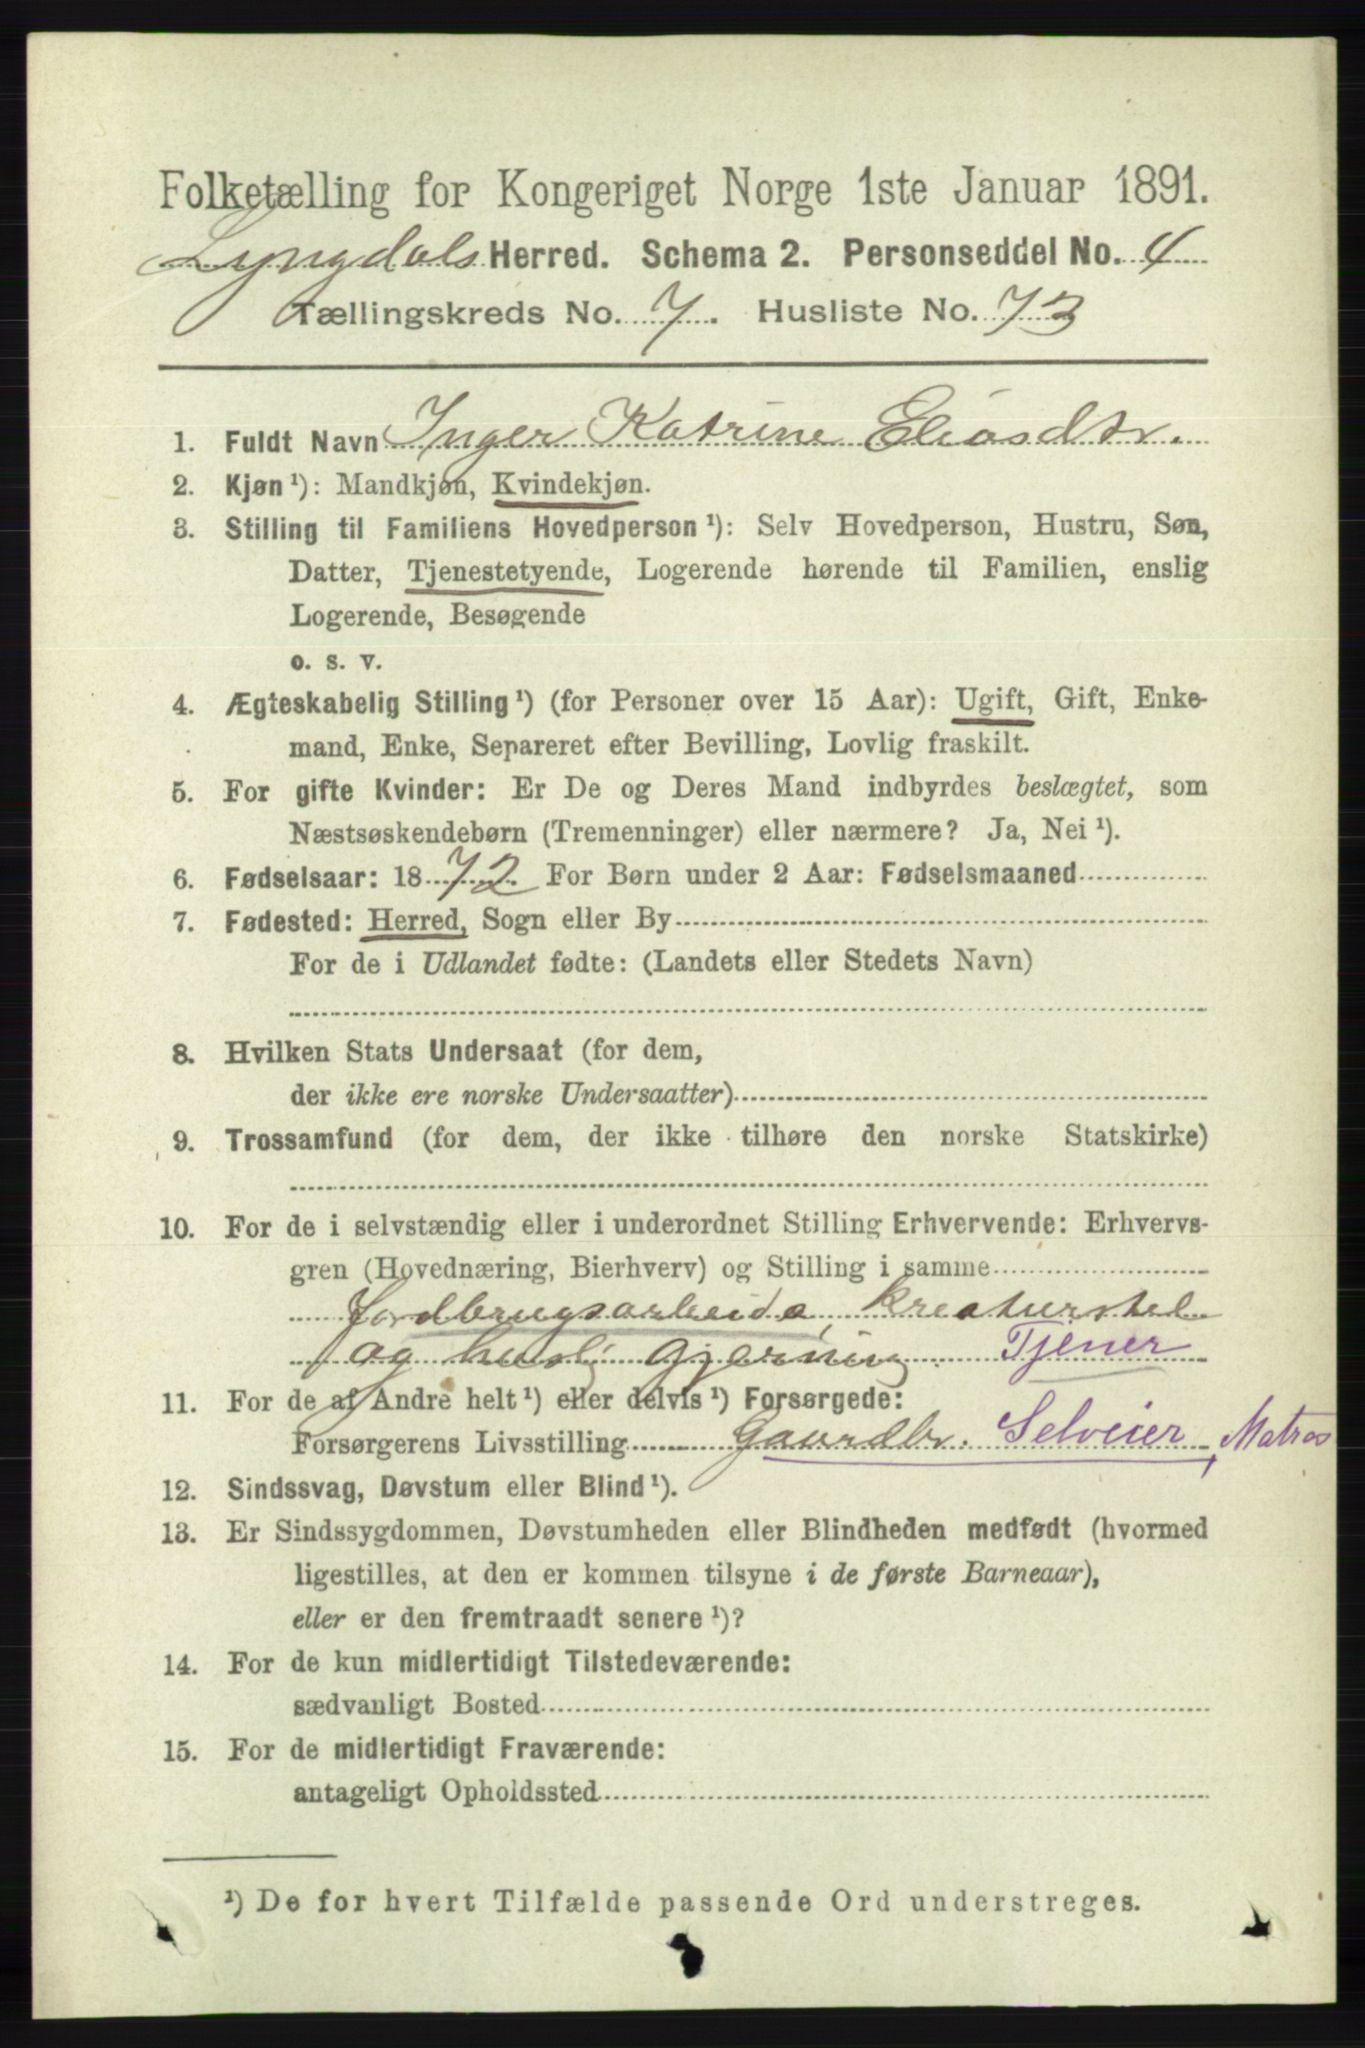 Folketælling for Kongeriget Norge 1ste Januar 1891.
Lyngdals Herred. Schema 2. Personseddel No. 4
Tællingskreds No. 7. Husliste No. 73
1. Fuldt Navn Inger Katrine Eliasdtr.
2. Kjøn ¹): Mandkjøn, Kvindekjøn.
3. Stilling til Familiens Hovedperson ¹): Selv Hovedperson, Hustru, Søn,
Datter, Tjenestetyende, Logerende hørende til Familien, enslig
Logerende, Besøgende
o. s. v.
4. Ægteskabelig Stilling ¹) (for Personer over 15 Aar): Ugift, Gift, Enke-
mand, Enke, Separeret efter Bevilling, Lovlig fraskilt.
5. For gifte Kvinder: Er De og Deres Mand indbyrdes beslægtet, som
Næstsøskendebørn (Tremenninger) eller nærmere? Ja, Nei ¹).
6. Fødselsaar: 1872. For Børn under 2 Aar: Fødselsmaaned
7. Fødested: Herred, Sogn eller By
For de i Udlandet fødte: (Landets eller Stedets Navn)
8. Hvilken Stats Undersaat (for dem,
der ikke ere norske Undersaatter)
9. Trossamfund (for dem, der ikke tilhøre den norske Statskirke)
10. For de i selvstændig eller i underordnet Stilling Erhvervende: Erhvervs-
gren (Hovednæring, Bierhverv) og Stilling i samme
Jordbrugsarbeide, kreaturstel
og huslig gjerning. Tjener
11. For de af Andre helt ¹) eller delvis ¹) Forsørgede:
Forsørgerens Livsstilling Gaardbr. Selveier, Matros
12. Sindssvag, Døvstum eller Blind ¹).
13. Er Sindssygdommen, Døvstumheden eller Blindheden medfødt (hvormed
ligestilles, at den er kommen tilsyne i de første Barneaar),
eller er den fremtraadt senere ¹)?
14. For de kun midlertidigt Tilstedeværende:
sædvanligt Bosted
15. For de midlertidigt Fraværende:
antageligt Opholdssted
¹) De for hvert Tilfælde passende Ord understreges.